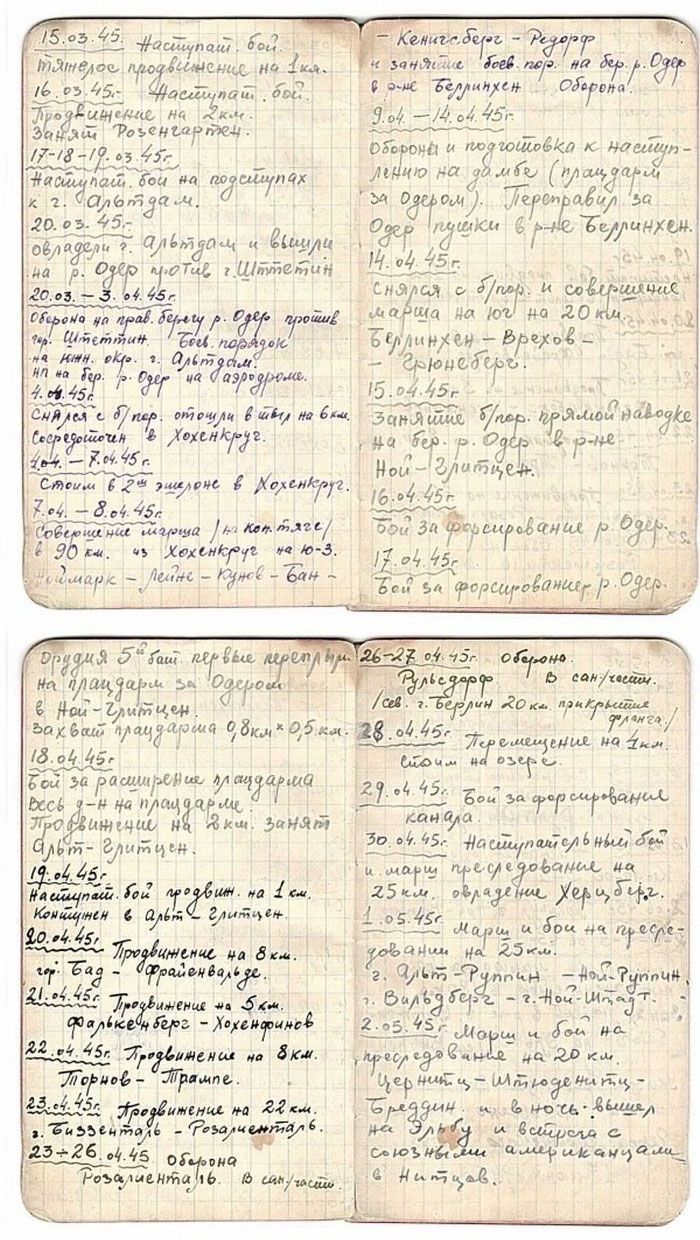 15.03.45. Наступат. бой.
тяжелое продвижение на 1 км.
16.03.45г. Наступат. бой.
Продвижение на 2 км.
Занят Розенгартен.
17-18-19.03.45г.
Наступат. бои на подступах
к г. Альтдам.
20.03.45г.
овладели г. Альтдам и вышли
на р. Одер против г. Штеттин
20.03. – 3.04.45г.
Оборона на прав. берегу р. Одер против
гор. Штеттин. Боев. порядок
на южн. окр. г. Альтдам.
нп на бер. р. Одер на аэродроме.
4.04.45г.
снялся с б/пор. отошли в тыл на 6 км.
сосредоточен в Хохенкруг.
4.04. – 7.04.45г.
Стоим в 2ом эшелоне в Хохенкруг.
7.04. – 8.04.45г.
Совершение марша /на кон. тяге/
в 90 км. из Хохенкруг на ю-з.
Ноймарк – Лейне – Кунов – Бан –
– Кенигсберг – Редорф
и занятие боев. пор. на бер. р. Одер
в р-не Беллинхен Оборона.
9.04. – 14.04.45г.
Оборона и подготовка к наступ-
лению на дамбе (плацдарм
за Одером). Переправил за
Одер пушки в р-не Беллинхен.
14.04.45г.
снялся с б/пор. и совершение
марша на юг на 20 км.
Беллинхен – Врехов –
– Грюнеберг.
15.04.45г.
Занятие б/пор. прямой наводке
на бер. р. Одер в р-не
Ной – Глитцен.
16.04.45г.
Бой за форсирование р. Одер.
17.04.45г.
Бой за форсирование р. Одер.
Орудия 5й бат. первые переплыли
на плацдарм за Одером
в Ной – Глитцен.
Захват плацдарма 0,8 км × 0,5 км.
18.04.45г.
Бой за расширение плацдарма
Весь д-н на плацдарме.
Продвижение на 2 км. занят
Альт – Глитцен.
19.04.45г.
Наступат. бой продвиж. на 1 км.
Контужен в Альт – Глитцен.
20.04.45г. Продвижение на 8 км.
гор. Бад – Фрайенвальде.
21.04.45г. Продвижение на 5 км.
Фалькенберг – Хохенфинов
22.04.45г. Продвижение на 8 км.
Торнов – Трампе.
23.04.45г. Продвижение на 22 км.
г. Биззенталь – Розалиенталь.
23÷26.04.45 Оборона
Розалиенталь. В сан/части.
26-27.04.45г. Оборона.
Рульсдорф В сан/части.
/сев. г. Берлин 20 км прикрытие
фланга./
28.04.45г. Перемещение на 4 км.
стоим на озере.
29.04.45г. Бой за форсирование
канала.
30.04.45г. Наступательный бой
и марш преследование на
25 км. овладение Херцберг.
1.05.45г. Марш и бои на пресле-
довании на 25 км.
г. Альт-Руппин – Ной-Руппин,
г. Вильдберг – г. Ной-Штадт.
2.05.45г Марш и бой на
преследование на 20 км.
Цернитц – Штюденитц –
Бреддин. и в ночь вышел
на Эльбу и встреча с
союзными американцами
в Нитцов.